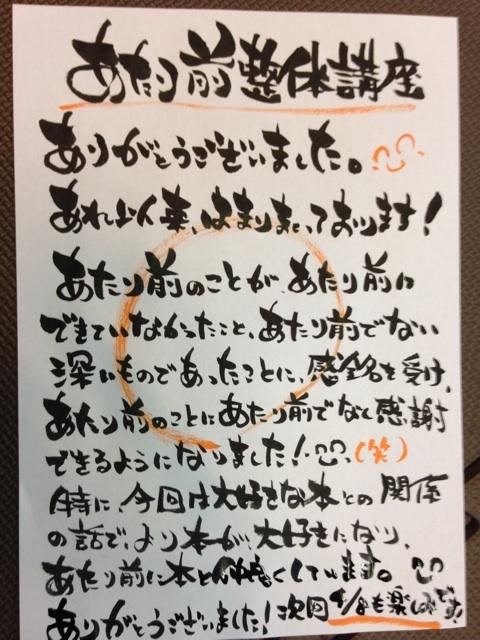 あたり前整体講座
ありがとうございました。
あれ以来、はまりまくっております!
あたり前のことが、あたり前に
できていなかったこと、あたり前でない
深いものであったことに、感銘を受け、
あたり前のことにあたり前でなく感謝
できるようになりました!(笑)
特に、今回は大好きな本との関係
の話で、より本が、大好きになり、
あたり前に本とくしています。
ありがとうございました!次回4/8も楽しみです!